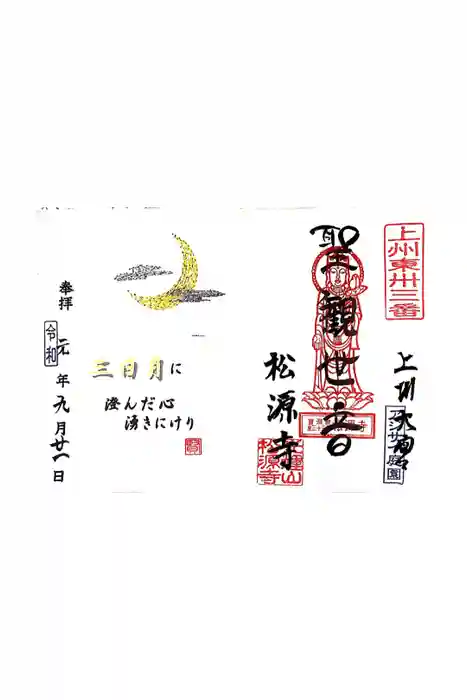 上州東卅三番
上州大胡
アジサイ庭園
聖観世音
松源寺
松源寺
三日月に
澄んだ心
湧きにけり
奉拝
令和元年九月廿一日